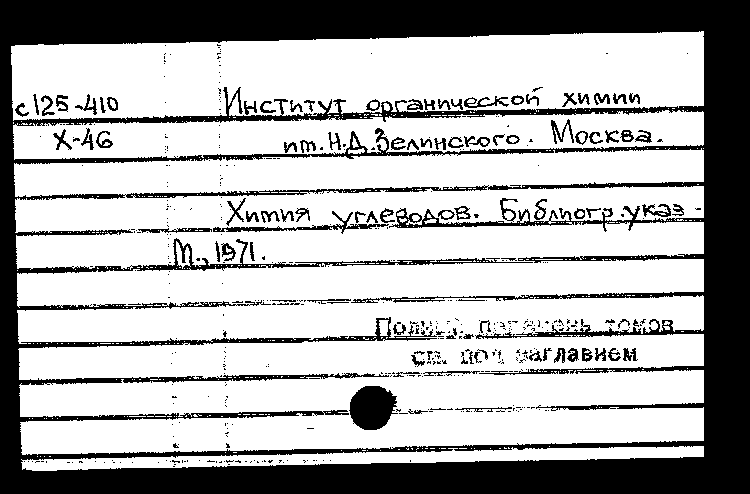 с125-410 Институт органической химии
Х-46 им. Н.Д.Зелинского. Москва.
Химия углеводов. Библиогр.указ-
М., 1971.
Полный перечень томов
см. под заглавием